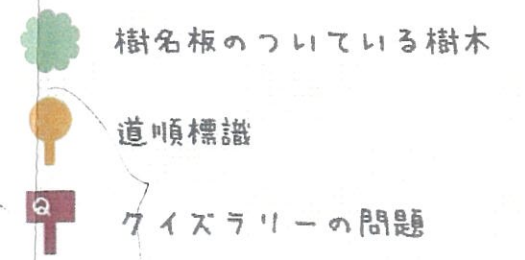 樹名板のついている樹木
道順標識
Q
クイズラリーの問題